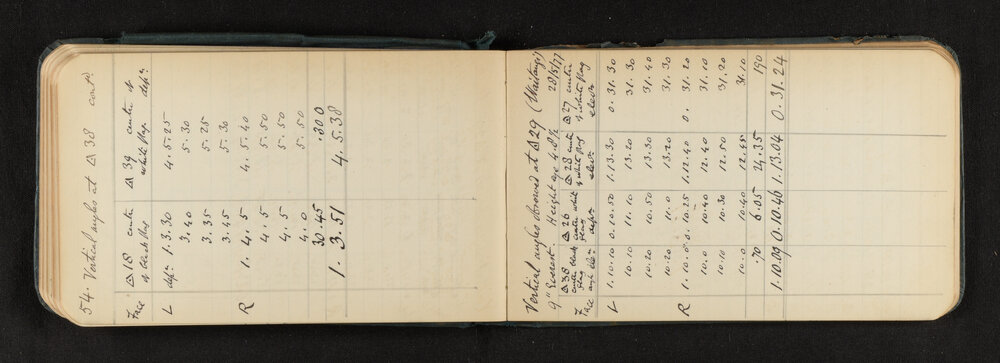 54. Vertical angles at Δ 38 cont^d
Face Δ 18 centre Δ 39 centre of
of black flag white flag dep^n
L dep^n 1. 3. 30 4. 5. 25
3. 40 5. 30
3. 35 5. 25
3. 45 5. 30
R 1. 4. 5 4. 5. 40
4. 5 5. 50
4. 5 5. 50
4. 0 5. 50
30.45 .300
1. 3. 51 4. 5. 38
Vertical angles observed at Δ29 (Waitangi)
9" Everest. Height eye 4.8½ 28/5/77
Face Δ 38 Δ 26 Δ 28 centre Δ 27 centre
centre black centre white of white flag of white flag
flag flag
elev^n dep^n elev^n elev^n
L 1.10.10 0.10.50 1.13.30 0. 31. 30
10.10 11.10 13.20 31. 30
10.20 10.50 13.30 31. 40
10.20 11.0 13.20 31. 30
R 1.10.0 0.10.25 1.12.40 0. 31. 20
10.0 10.40 12.40 31. 10
10.10 10.30 12.50 31. 20
10.0 10.40 12.45 31. 10
.70 6.05 24.35 190
1.10.09 0.10.46 1.13.04 0. 31. 24